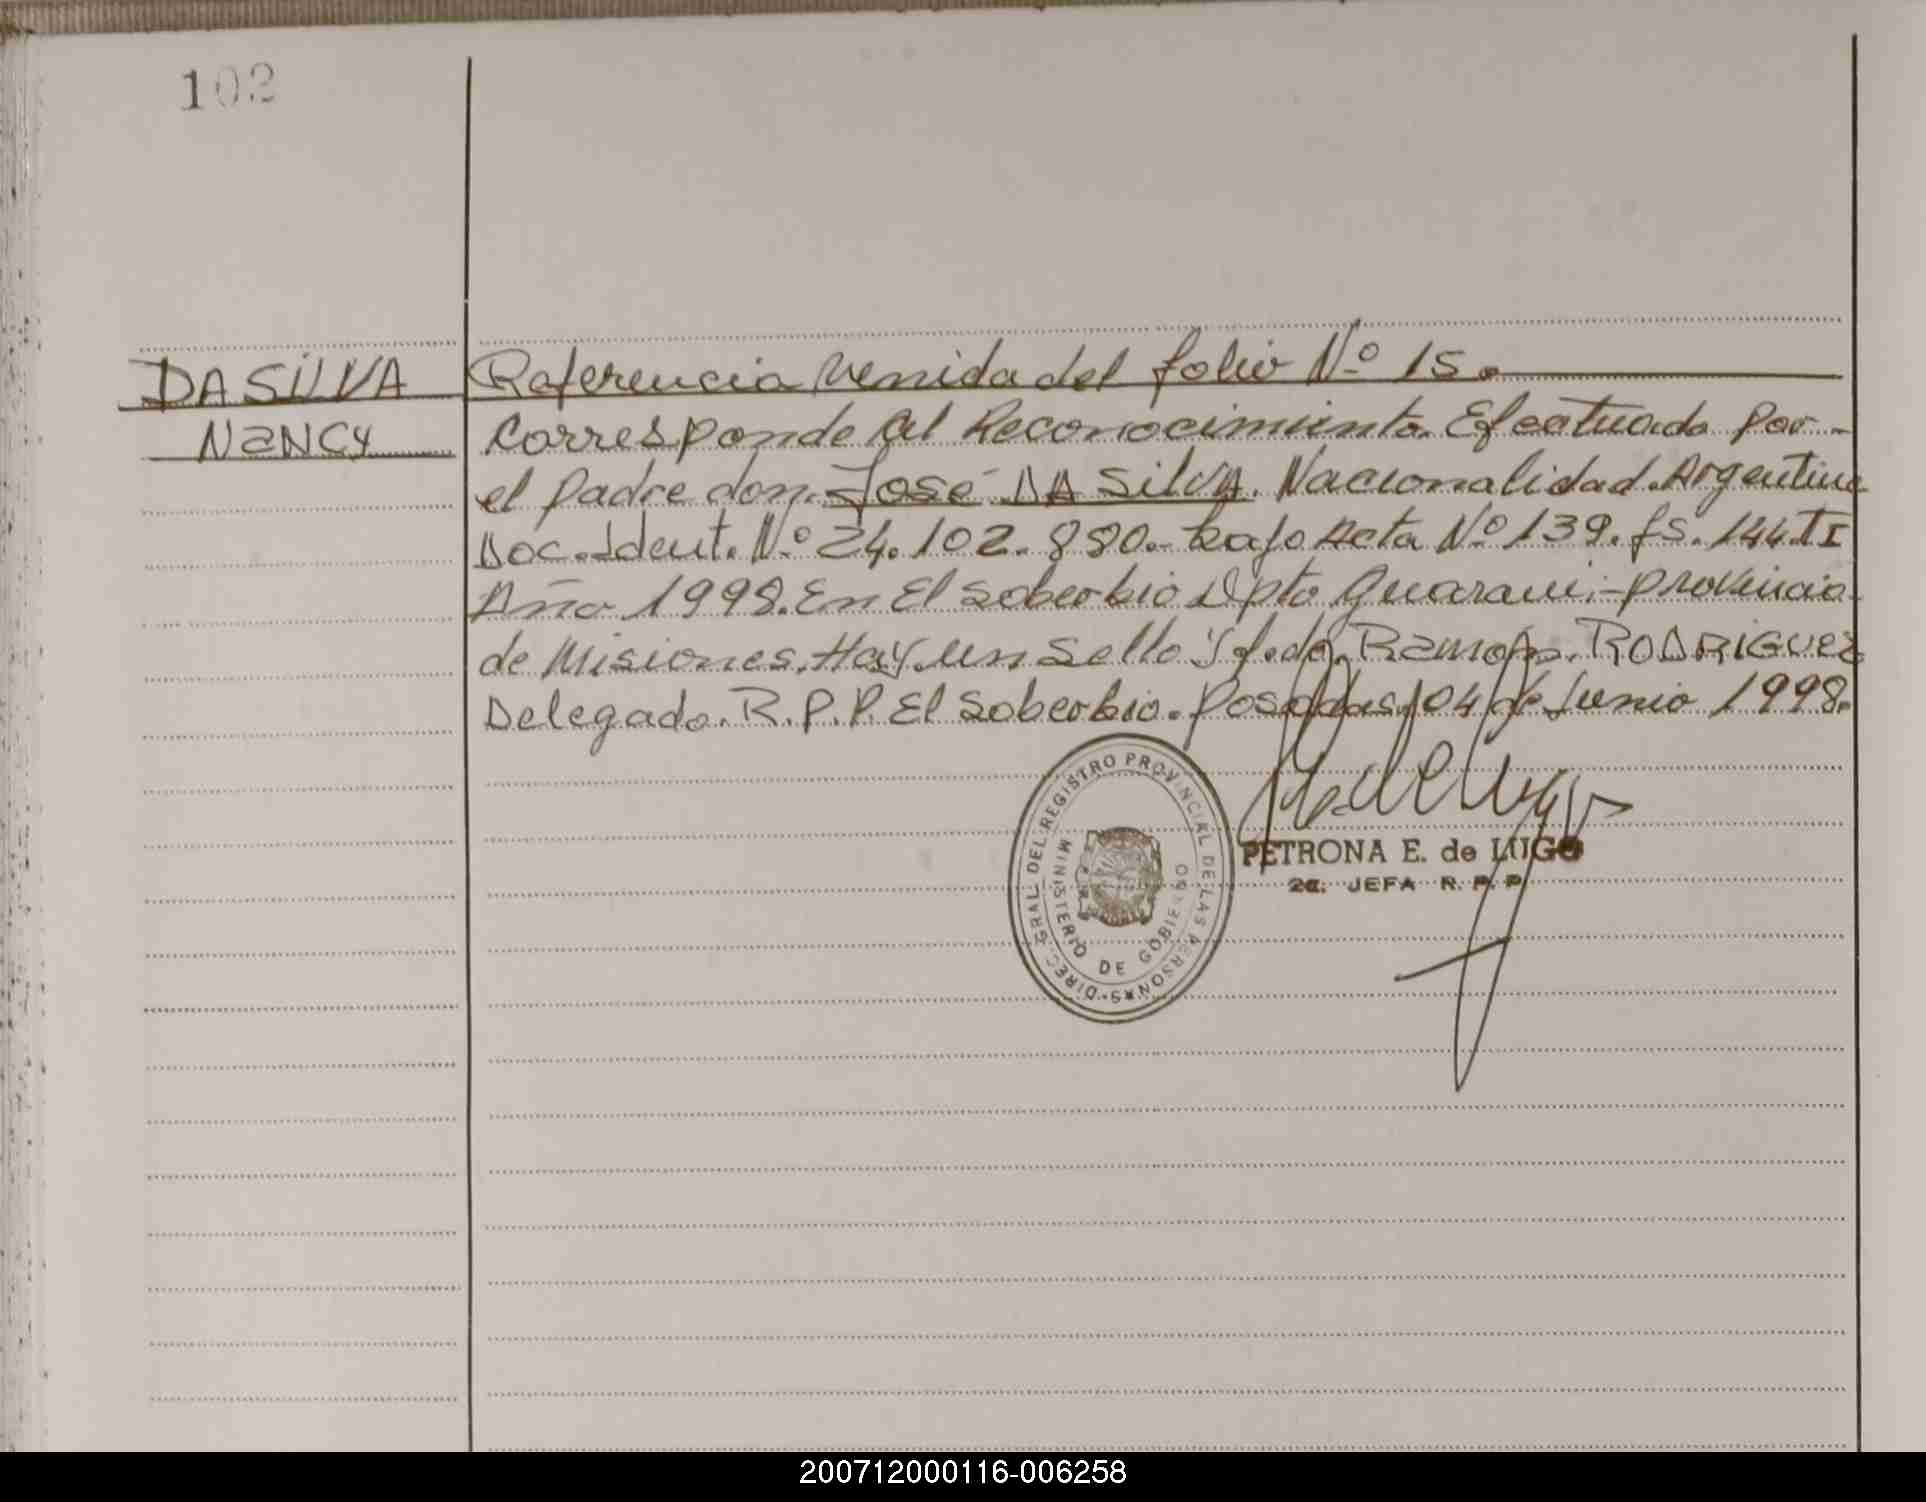 102
DA SILVA
NANCY
Referencia Venida del folio Nº 15.
Corresponde al Reconocimiento. Efectuado por-
el padre don. José DA SilVA. Nacionalidad. Argentina
Doc. Ident. Nº 24.102.880.- bajo Acta Nº 139. fs. 144. TI
Año 1998. En El Soberbio Dpto Guarani.- provincia
de Misiones. Hay un Sello y fdo. Ramon. RODRIGUEZ
Delegado. R.P.P. El Soberbio. Posadas, 04 de Junio 1998.
DIREC. GRAL DEL REGISTRO PROVINCIAL DE LAS PERSONAS
MINISTERIO DE GOBIERNO
PETRONA E. de LUGO
2a. JEFA R. P. P.
200712000116-006258